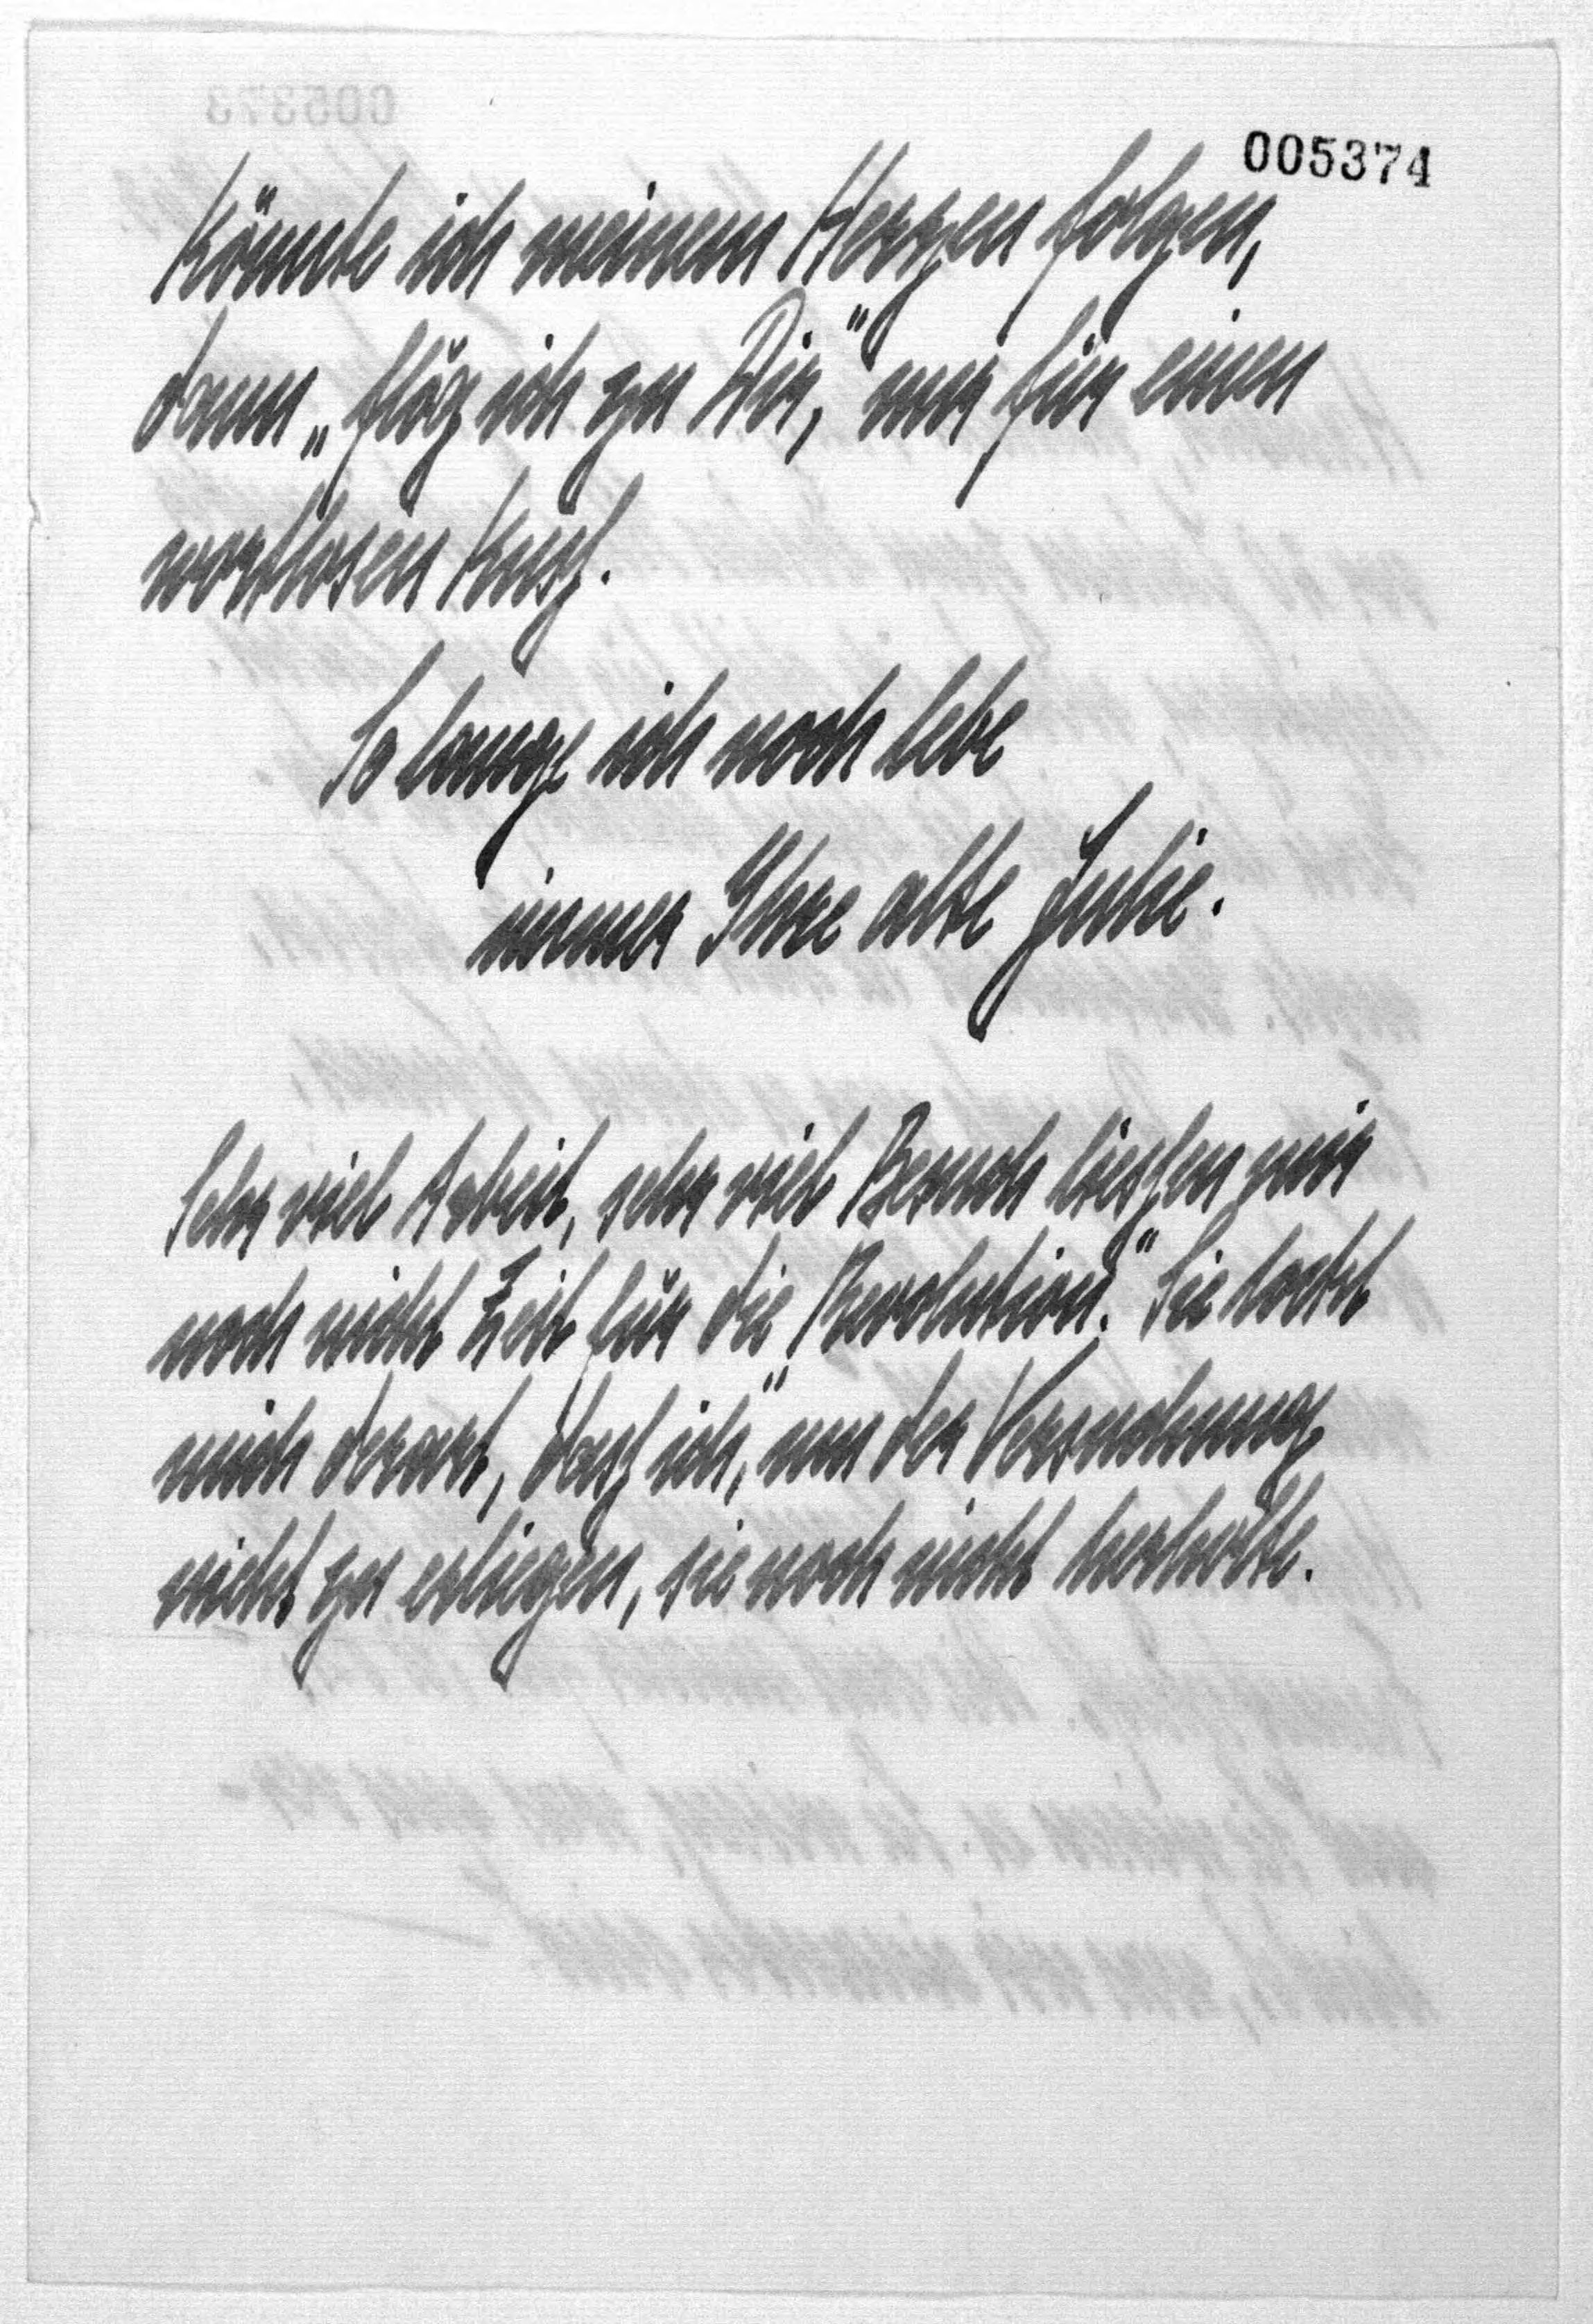 005374
Könnte ich meinem Herzen folgen,
dann „flög ich zu Dir," nur für einen
wortlosen Kusz.
So lange ich noch lebe
immer Ihre alte Julie.
Sehr viel Arbeit, sehr viel Besuch lieszen mir
noch nicht Zeit für die „Revolution." Sie lockt
mich derart, dasz ich, um der Versuchung
nicht zu erliegen, sie noch nicht herholte.